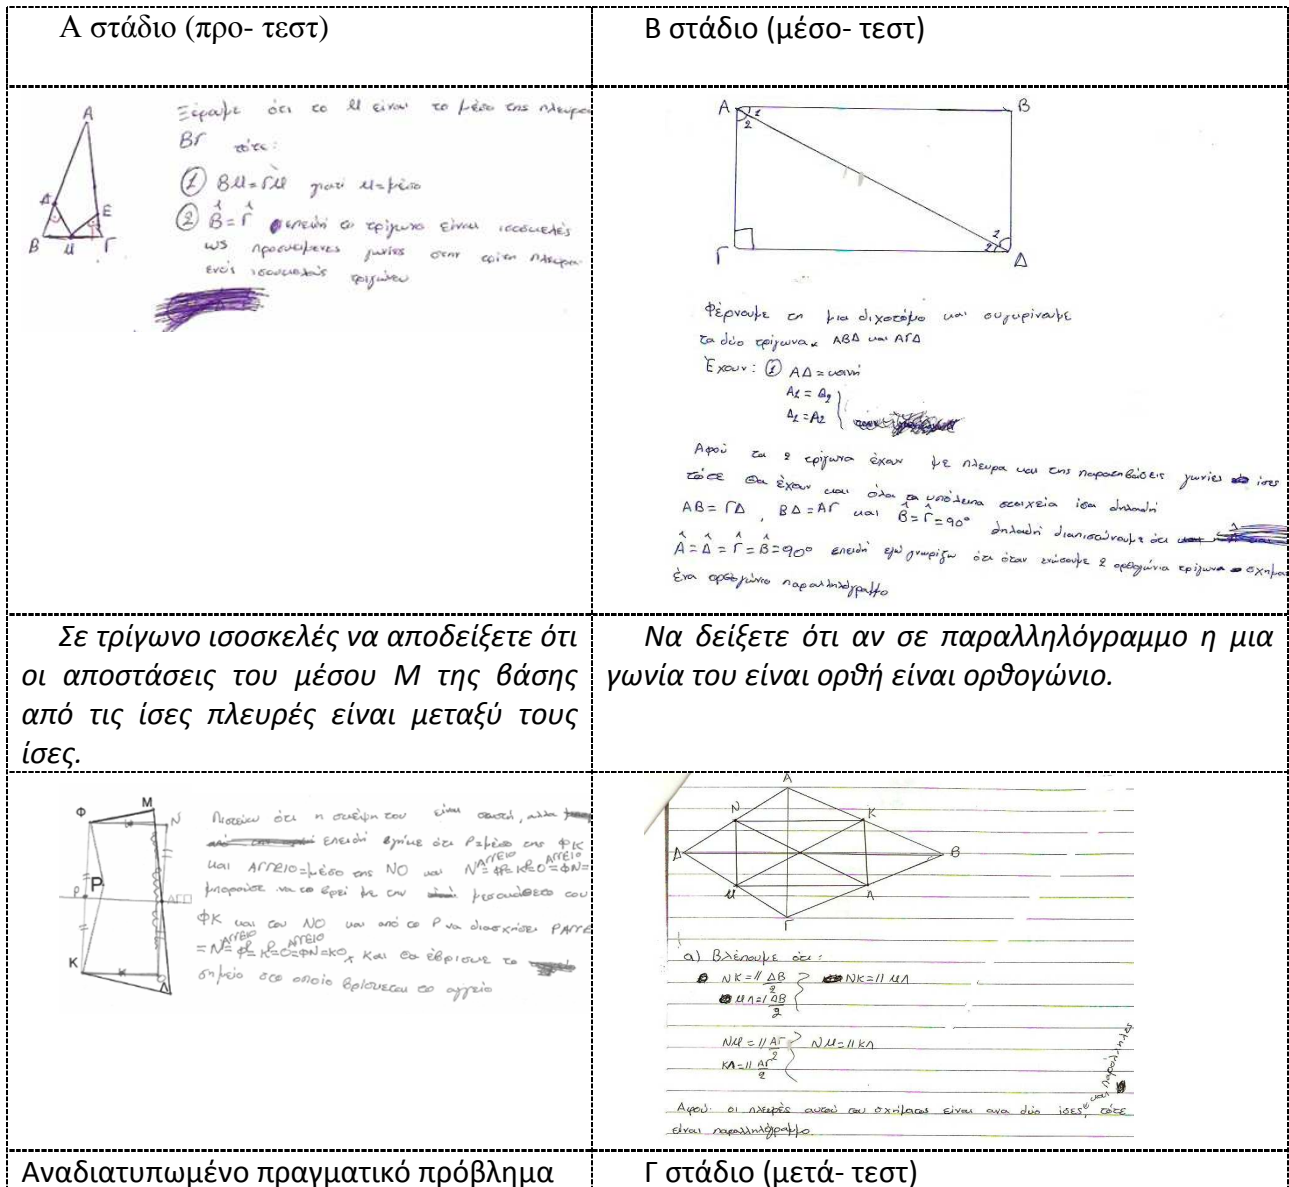 Α στάδιο (προ- τεστ)
Β στάδιο (μέσο- τεστ)
Α
Δ
Ε
Β
Μ
Γ
Ξέρουμε ότι το Μ είναι το μέσο της πλευρας
ΒΓ τότε:
① ΒΜ=ΓΜ γιατί Μ=μέσο
② Β̂=Γ̂ επειδή το τρίγωνο είναι ισοσκελές
ως προσκείμενες γωνίες στην τρίτη πλευρα
ενός ισοσκελούς τριγώνου
Α
Β
1
2
2
2
Γ
Δ
Φέρνουμε τη μια διχοτόμο και συγκρίνουμε
τα δύο τρίγωνα ΑΒΔ και ΑΓΔ
Έχουν: ① ΑΔ=κοινή
Α1 = Δ2
Δ1 = Α2
Αφού τα 2 τρίγωνα έχουν με πλευρα και της γωνίες ίσες
τότε θα έχουν και όλα τα υπόλοιπα στοιχεία ίσα δηλαδή
ΑΒ= ΓΔ, ΒΔ=ΑΓ και Β̂=Γ̂=90° δηλαδή διαπιστώνουμε ότι
Α̂=Δ̂=Γ̂=Β̂=90° επειδή εγώ γνωρίζω ότι όταν ενώσουμε 2 ορθογώνια τρίγωνα σχημα
ένα ορθογώνιο παραλληλόγραμμο
Σε τρίγωνο ισοσκελές να αποδείξετε ότι
οι αποστάσεις του μέσου Μ της βάσης
από τις ίσες πλευρές είναι μεταξύ τους
ίσες.
Να δείξετε ότι αν σε παραλληλόγραμμο η μια
γωνία του είναι ορθή είναι ορθογώνιο.
Φ
Μ
Ν
Ρ
Ρ
Κ
Λ
Πιστεύω ότι η σκέψη του είναι σωστή, αλλα
επειδή βγήκε ότι Ρ=μέσο της ΦΚ
και ΑΓΓΕΙΟ=μέσο της ΝΟ και
μπορούσε να το βρεί με την μεσοκάθετο του
ΦΚ και του ΝΟ και από το Ρ να
και θα έβρισκε το
σημείο στο οποίο βρίσκεται το αγγείο
Α
Ν
Κ
Δ
Β
Μ
Λ
Γ
α) Βλέπουμε ότι:
ΝΚ=//ΔΒ/2 ΝΚ=//ΜΛ
ΜΛ=//ΔΒ/2
ΝΜ=//ΑΓ/2 ΝΜ=//ΚΛ
ΚΛ=//ΑΓ/2
Αφού οι πλευρές αυτού του σχήματος είναι ανα δύο ίσες και παράλληλες, τότε
είναι παραλληλόγραμμο.
Αναδιατυπωμένο πραγματικό πρόβλημα
Γ στάδιο (μετά- τεστ)